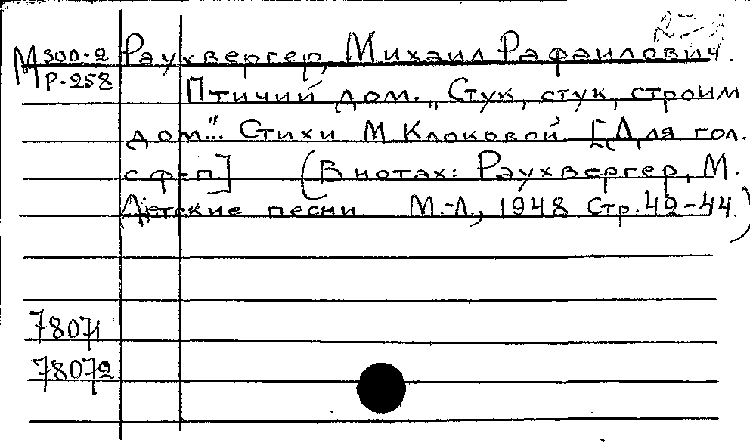 М 300-2 Раухвергер, Михаил Рафаилович.
Р-258 Птичий дом. „Стук, стук, строим
дом..." Стихи М Клоковой [Для гол.
с ф-п] (В нотах: Раухвергер, М.
Детские песни М.-Л., 1948 Стр. 42-44.)
78071
78072